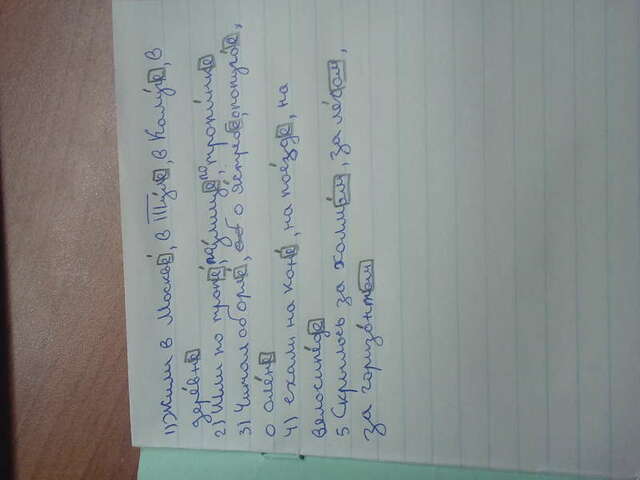 1) Жили в Москве́, в Ту́ле, в Калу́ге, в
дере́вне
2) Шли по тропе́, у́лице, по тропи́нке
3) Читал об орле́, о ястребе, попуга́е,
о оле́не
4) ехали на коне́, на по́езде, на
велосипе́де
5 Скрылось за холмо́м, за ле́сом,
за горизо́нтом